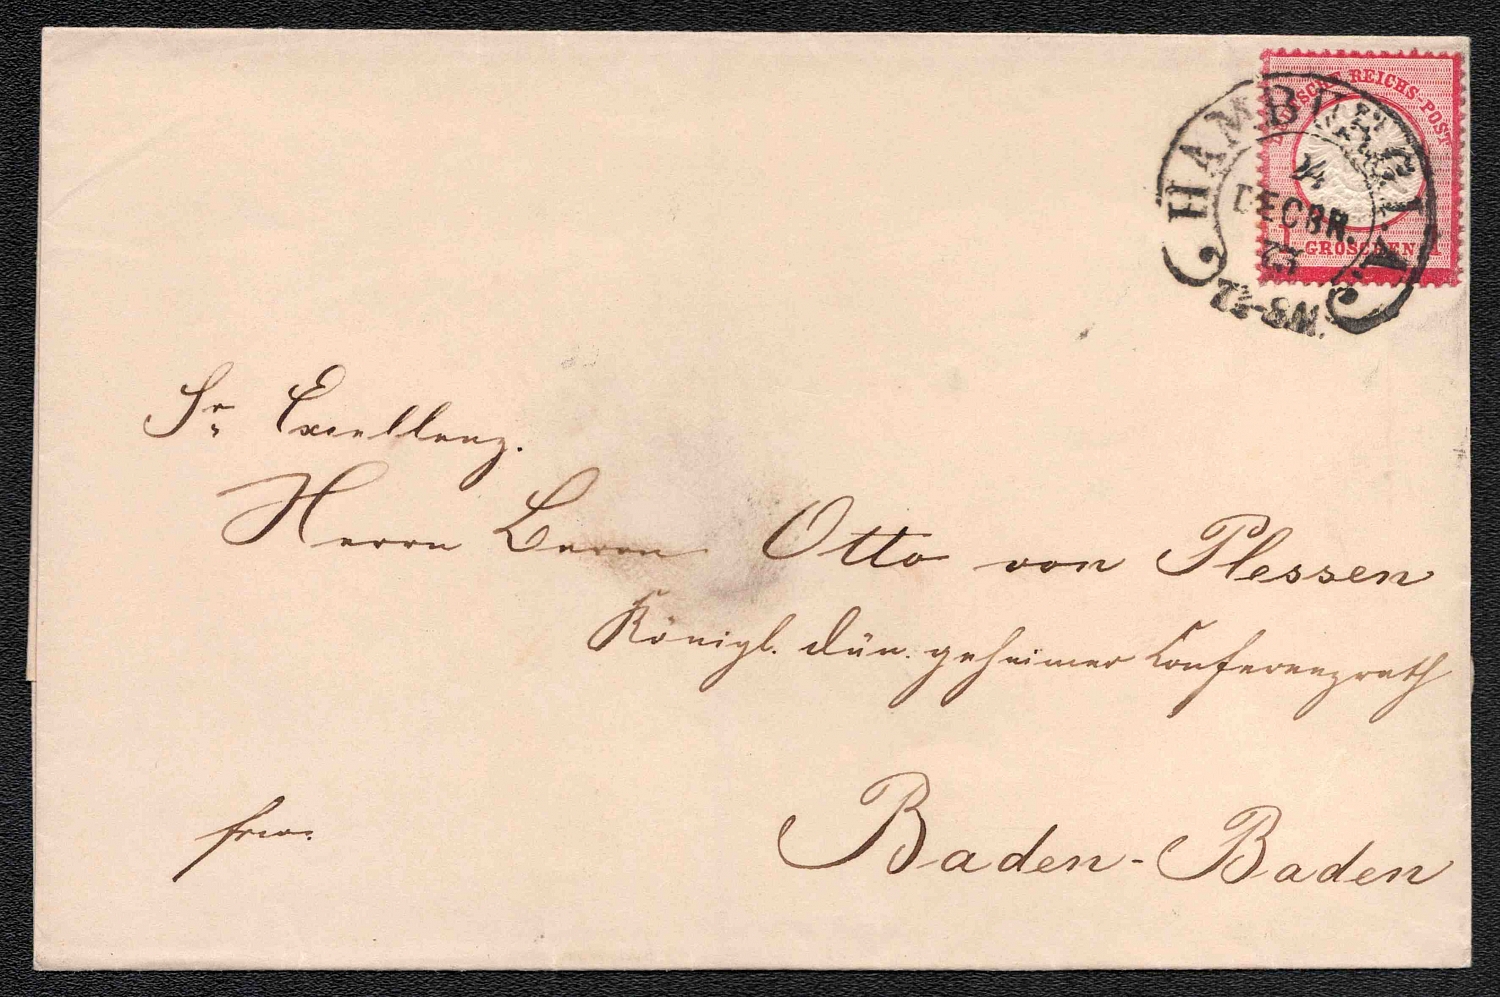 DEUTSCHE REICHS-POST
1 GROSCHEN 1
HAMBURG I.A.
DECBR.
73
7½-8N.
Sr. Excellenz.
Herrn Baron Otto von Plessen
Königl. dän. geheimer Conferenzrath
Baden-Baden
frco.